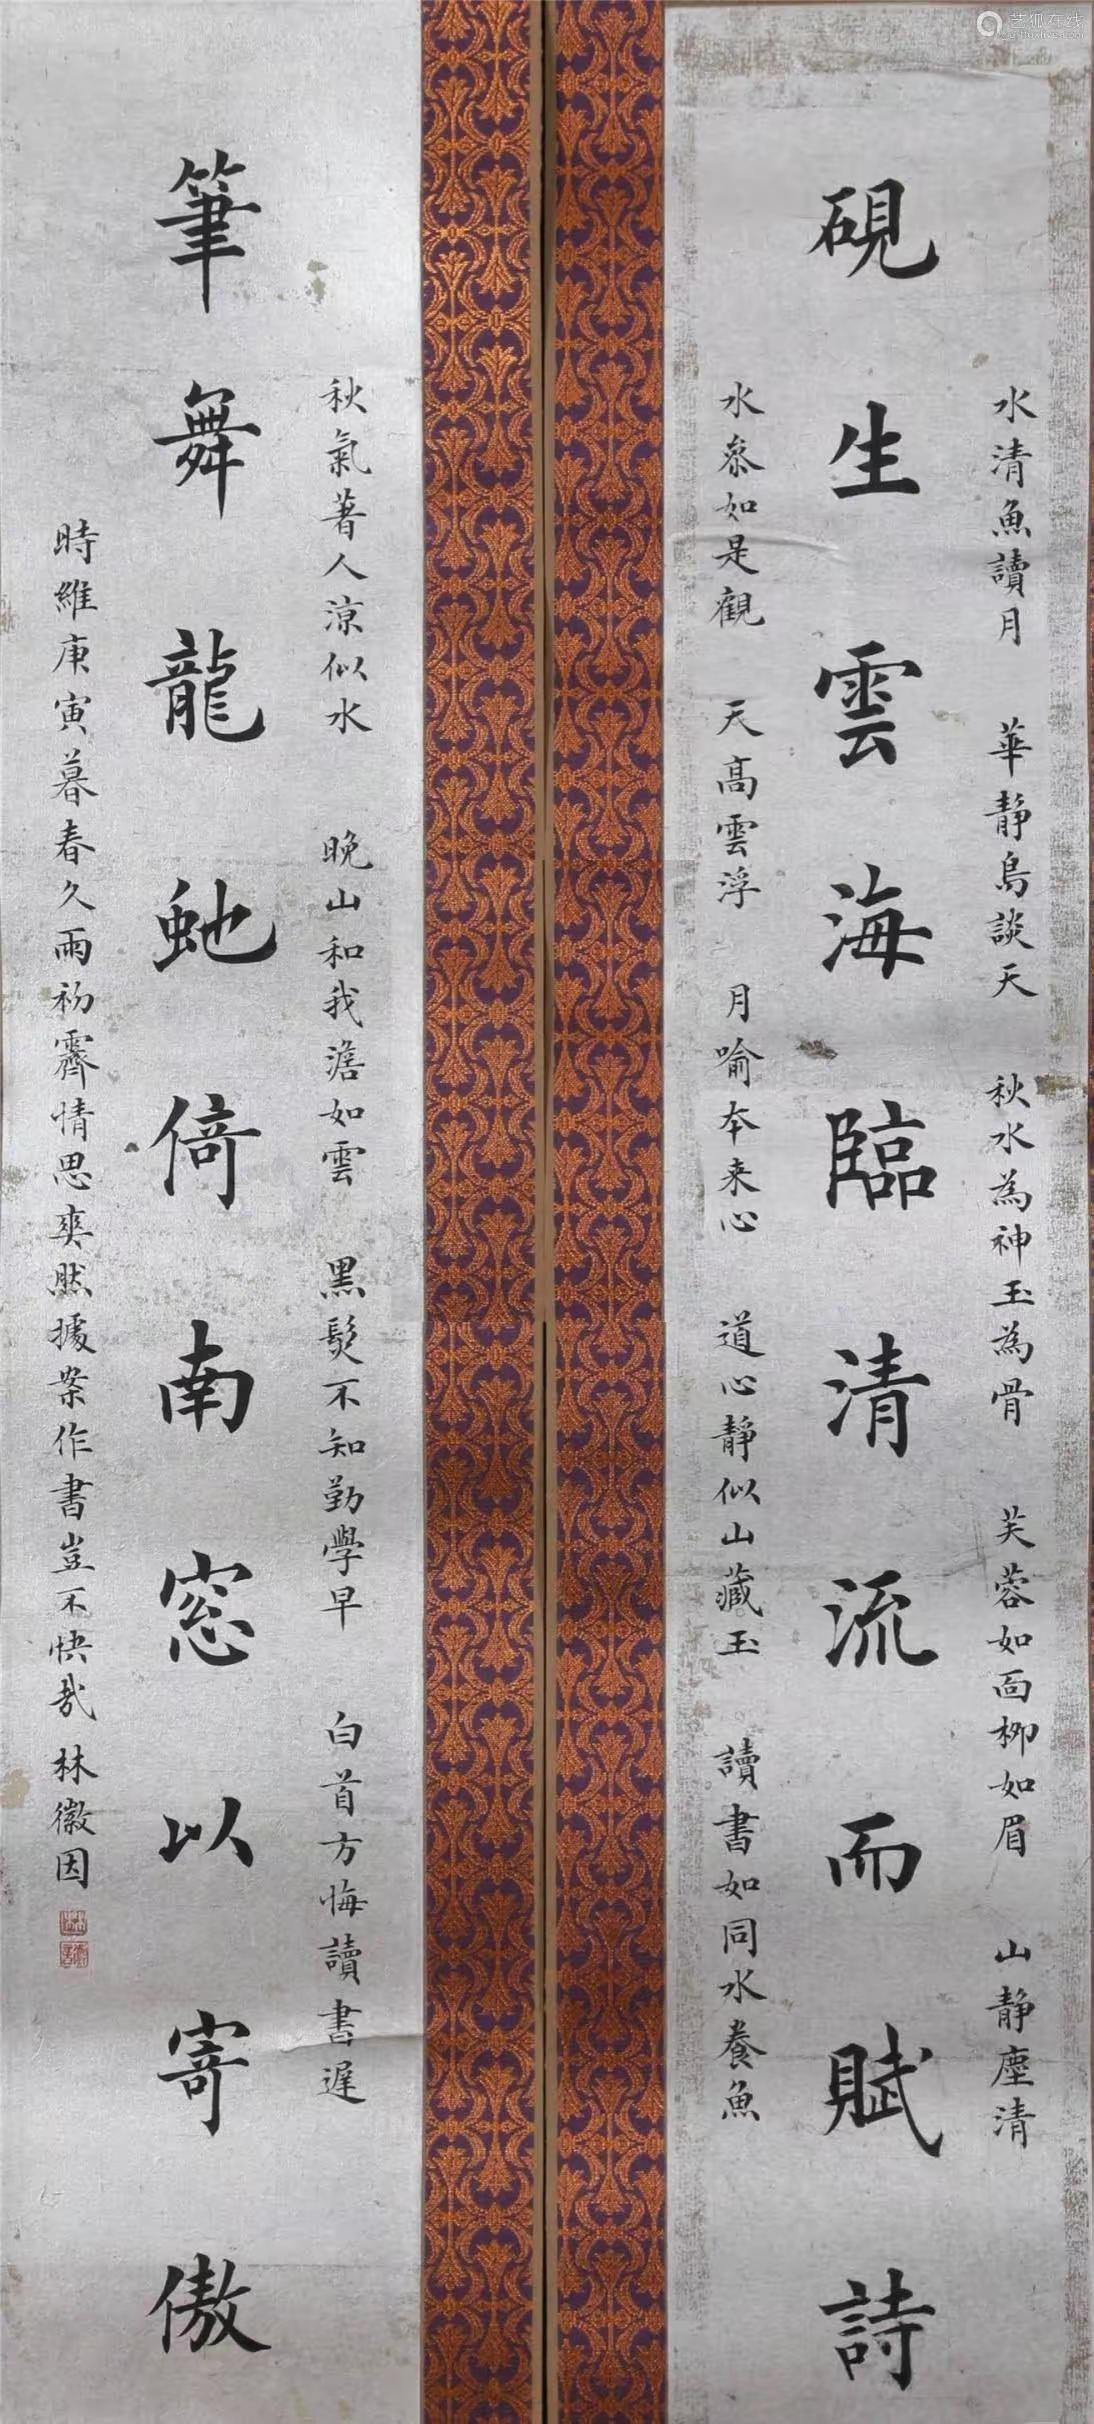 硯生雲海臨清流而賦詩
水清魚讀月 華靜鳥談天 秋水為神玉為骨 芙蓉如面柳如眉 山靜塵清
水叅如是觀 天高雲浮 月喻本来心 道心靜似山藏玉 讀書如同水養魚
筆舞龍虵倚南窓以寄傲
秋氣著人涼似水 晚山和我澹如雲 黑髮不知勤學早 白首方悔讀書遲
時維庚寅暮春久雨初霽情思爽然據案作書豈不快哉 林徽因
艺狐在线